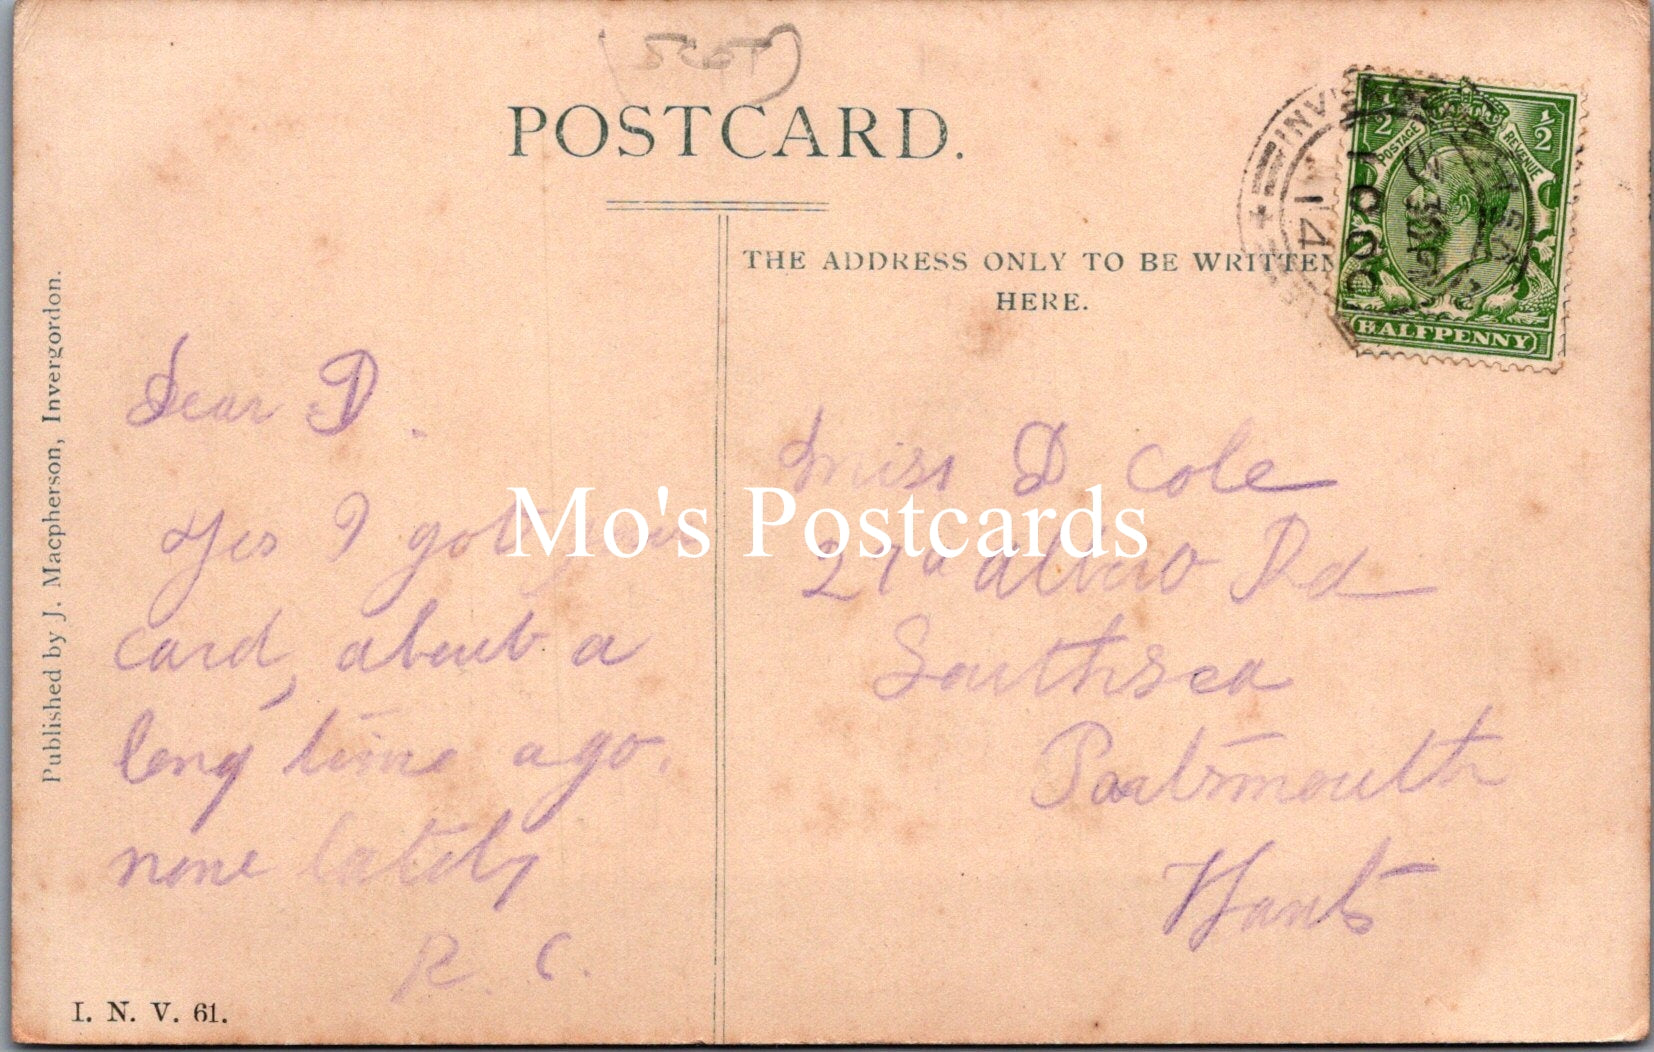 POSTCARD.
THE ADDRESS ONLY TO BE WRITTEN
HERE.
½ ½
POSTAGE REVENUE
HALFPENNY
14
Published by J. Macpherson, Invergordon.
Dear D.
Yes I got your
card, about a
long time ago.
none lately
R. C.
Miss D Cole
Rd
Southsea
Portsmouth
Hants
Mo's Postcards
I. N. V. 61.